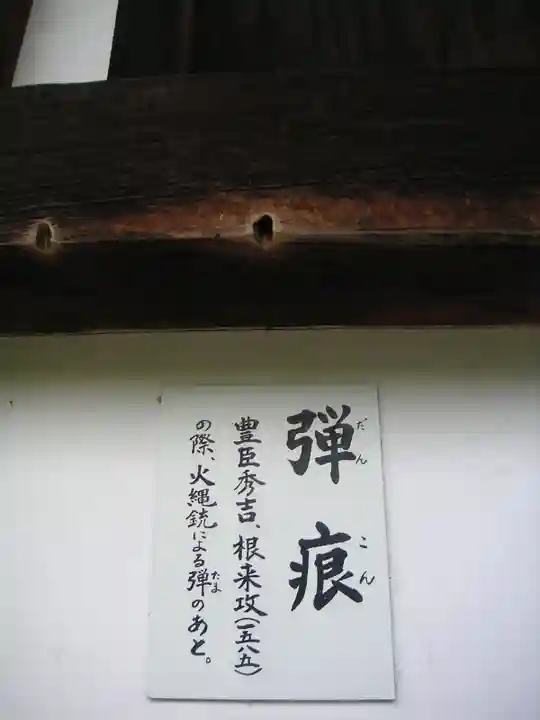 弾痕
だんこん
豊臣秀吉、根来攻(一五八五)
の際、火縄銃による弾のあと。
たま